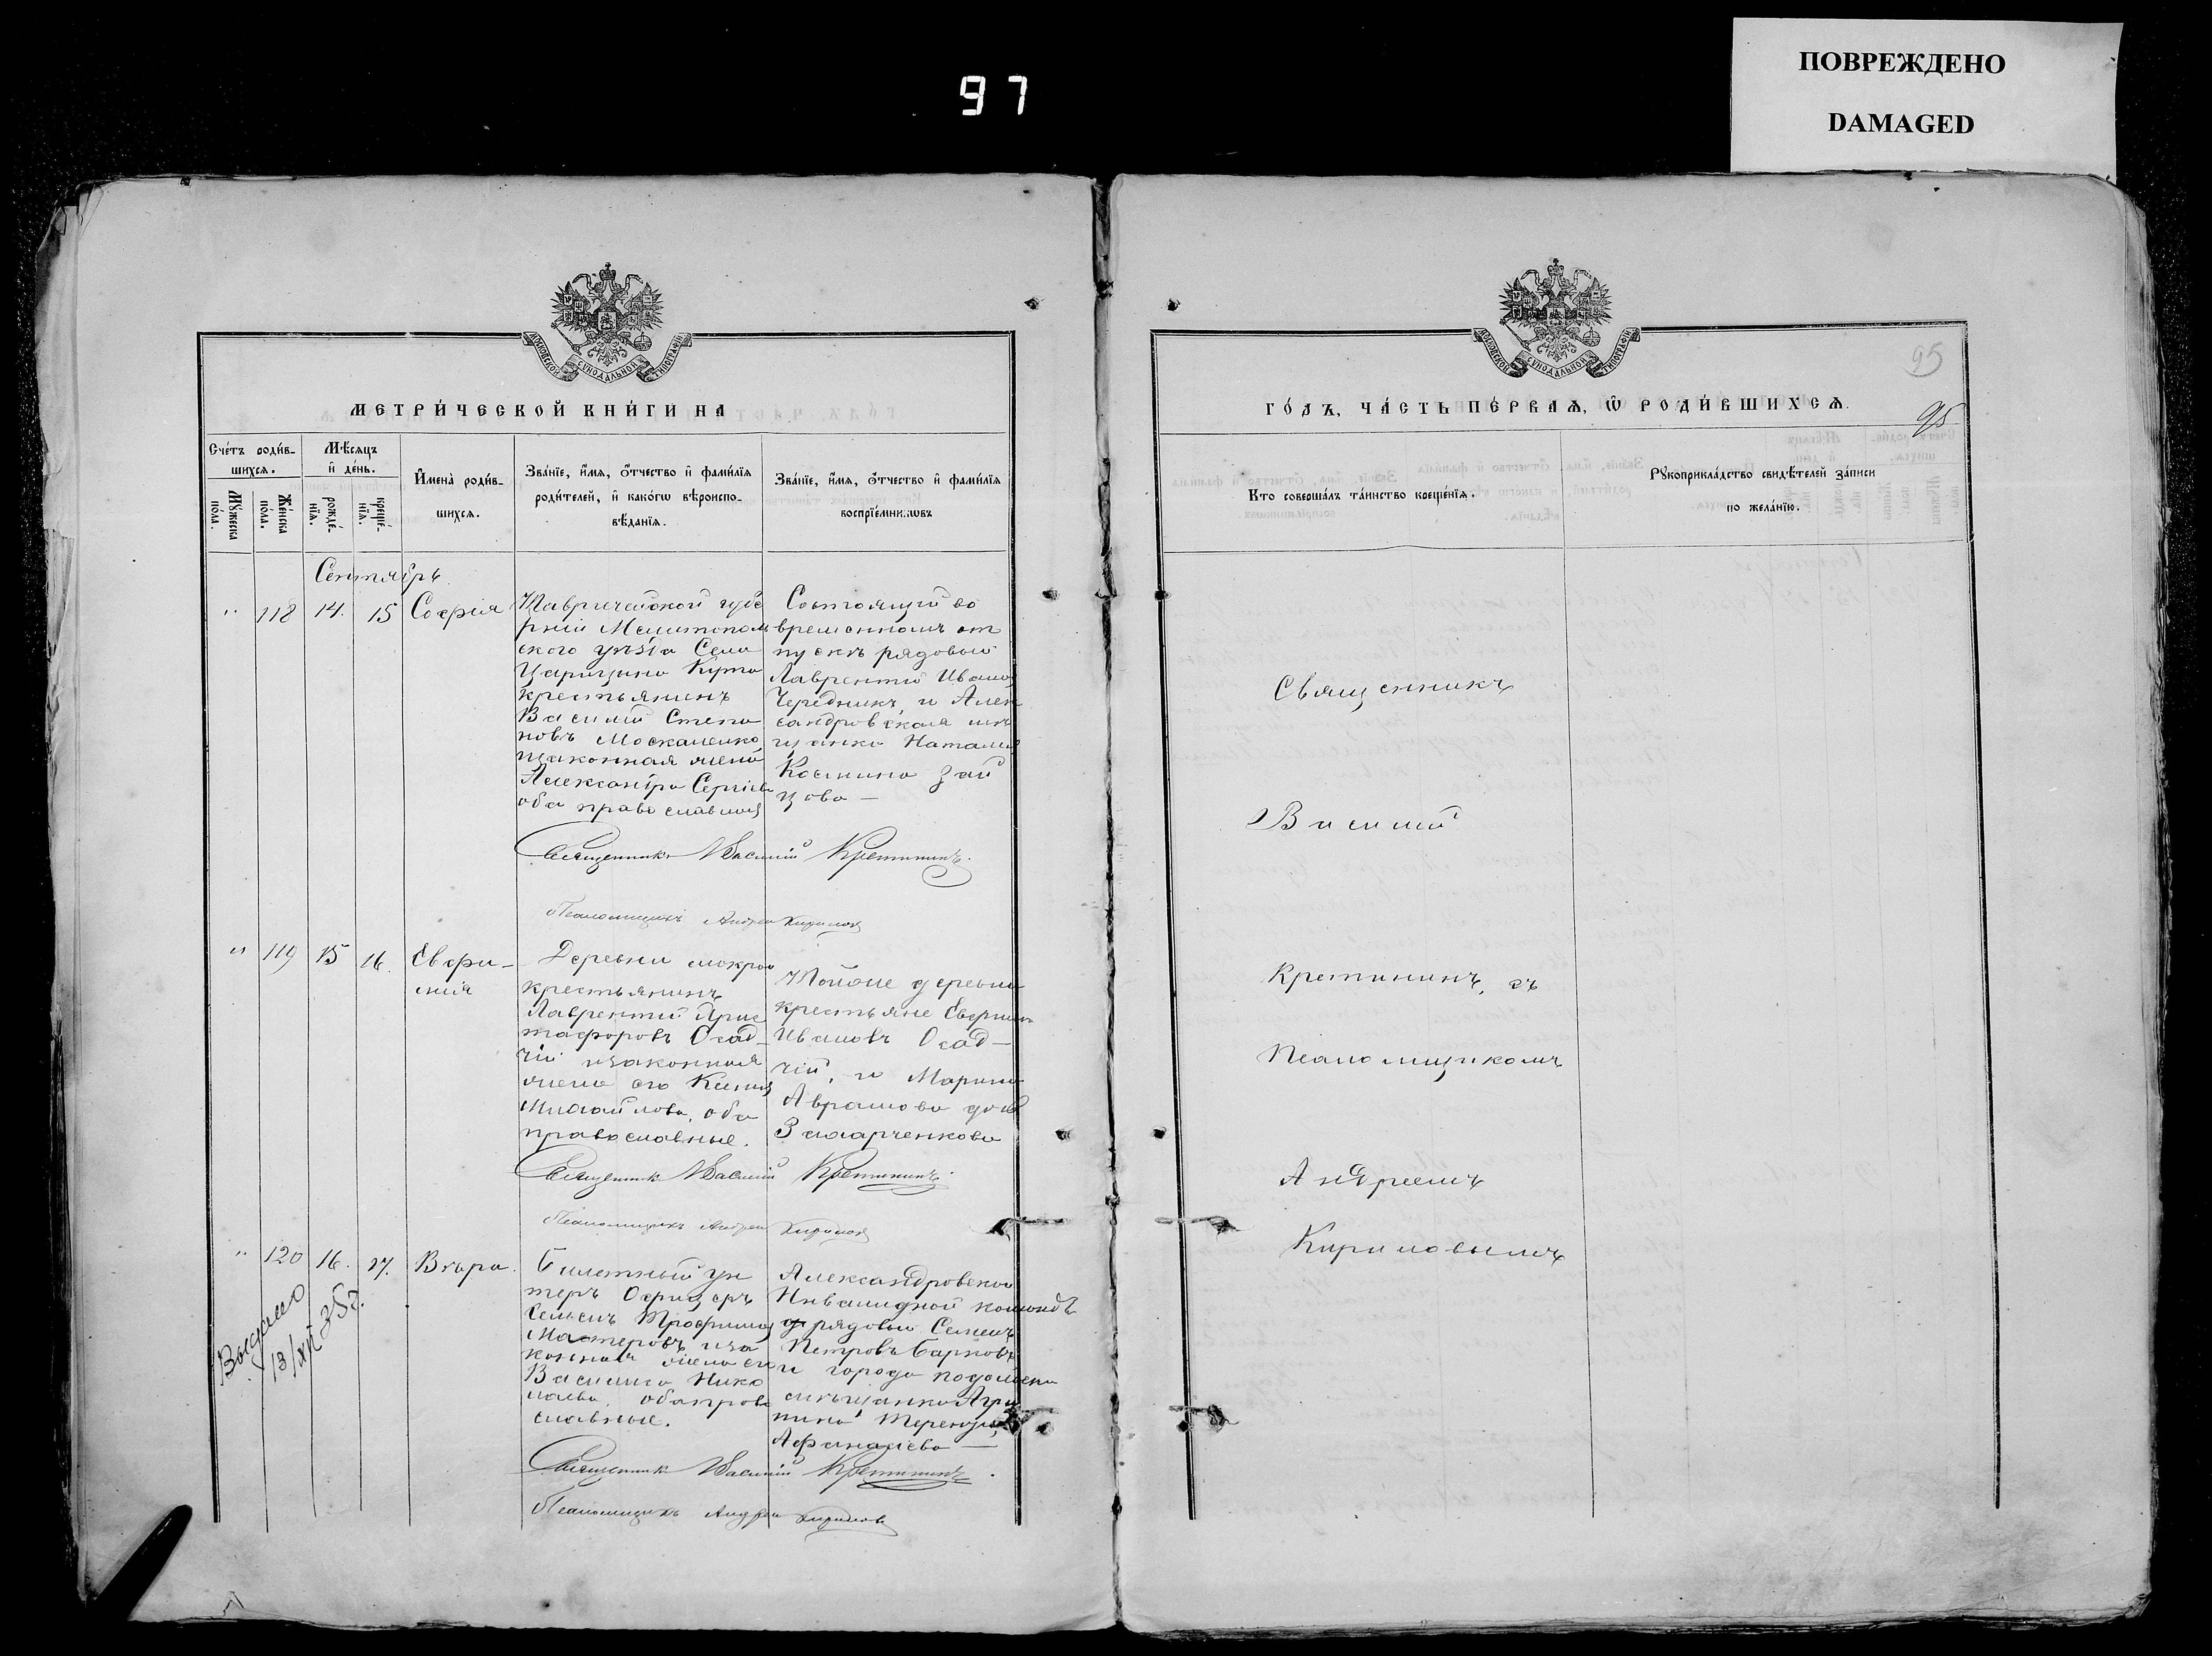 97
ПОВРЕЖДЕНО
DAMAGED
МОСКОВСКОЙ СѴНОДАЛЬНОЙ ТИПОГРАФІИ
МЕТРИ́ЧЕСКОЙ КНИ́ГИ НА
Сче́тъ роди́в-
шихсѧ.
Мꙋ́жеска по́ла.
Же́нска по́ла.
Мѣ́сѧцъ
и҆ де́нь.
рожде́-нїѧ.
креще́-нїѧ.
И҆мена̀ роди́в-
шихсѧ.
Зва́нїе, и҆́мѧ, ѻ҆́тчество и҆ фами́лїѧ
роди́телей, и҆ како́гѡ вѣроиспо-
вѣ́данїѧ.
Зва́нїе, и҆́мѧ, ѻ҆́тчество и҆ фами́лїѧ
воспрїе́мникѡвъ
Сентябрь
" 118 14. 15 Софія
Таврической губе
рніи Мелитополь
ского уѣзда Села
Царицина Кута
крестьянинъ
Василій Степа
новъ Москаленко
изаконная жена
Александра Сергіева
оба православныя
Состоящій во
временномъ от
пускѣ рядовый
Лаврентій Иванов
Чередникъ, и Алек
сандровская мѣ
щанка Наталія
Космина Зай
цова —
Священникъ Василій Кретининъ.
Псаломщикъ Андрей Кириловъ
" 119 15 16. Евфи-
мія
Деревни мокрой
крестьянинъ
Лаврентій Хрис
тофоровъ Осад-
чій изаконная
жена его Ксенія
Михайлова, оба
православные.
Тойже деревни
крестьяне Евфимій
Ивановъ Осад-
чій, и Марина
Аврамова дочь
Захарченкова
Священникъ Василій Кретининъ.
Псаломщикъ Андрей Кириловъ
" 120 16. 17. Вѣра.
Выдано
13/XII 35 г.
Билетный ун
теръ Офицеръ
Семенъ Трофимов
Мастеровъ иза
конная жена его
Василиса Нико
лаева, обаправо
славные.
Александровской
Инвалидной командѣ
рядовый Семенъ
Петровъ Барковъ
и города подольска
мѣщанка Агри
пина Терентьева
Афанасіева —
Священникъ Василій Кретининъ.
Псаломщикъ Андрей Кириловъ
95
МОСКОВСКОЙ СѴНОДАЛЬНОЙ ТИПОГРАФІИ
ГО́ДЪ, ЧА́СТЬ ПЕ́РВАѦ, Ѡ҆ РОДИ́ВШИХСѦ.
95
Кто соверша́лъ та́инство креще́нїѧ.
Рꙋкоприкла́дство свидѣ́телей за́писи
по жела́нїю.
Священникъ
Василій
Кретининъ, съ
Псаломщикомъ
Андреемъ
Кириловымъ